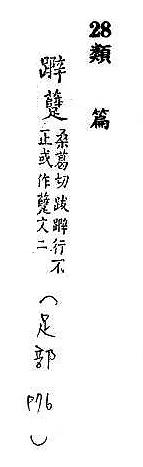 28 類篇
躃躠
桑葛切跋躃行不
正或作躠文二
（足部 P76）